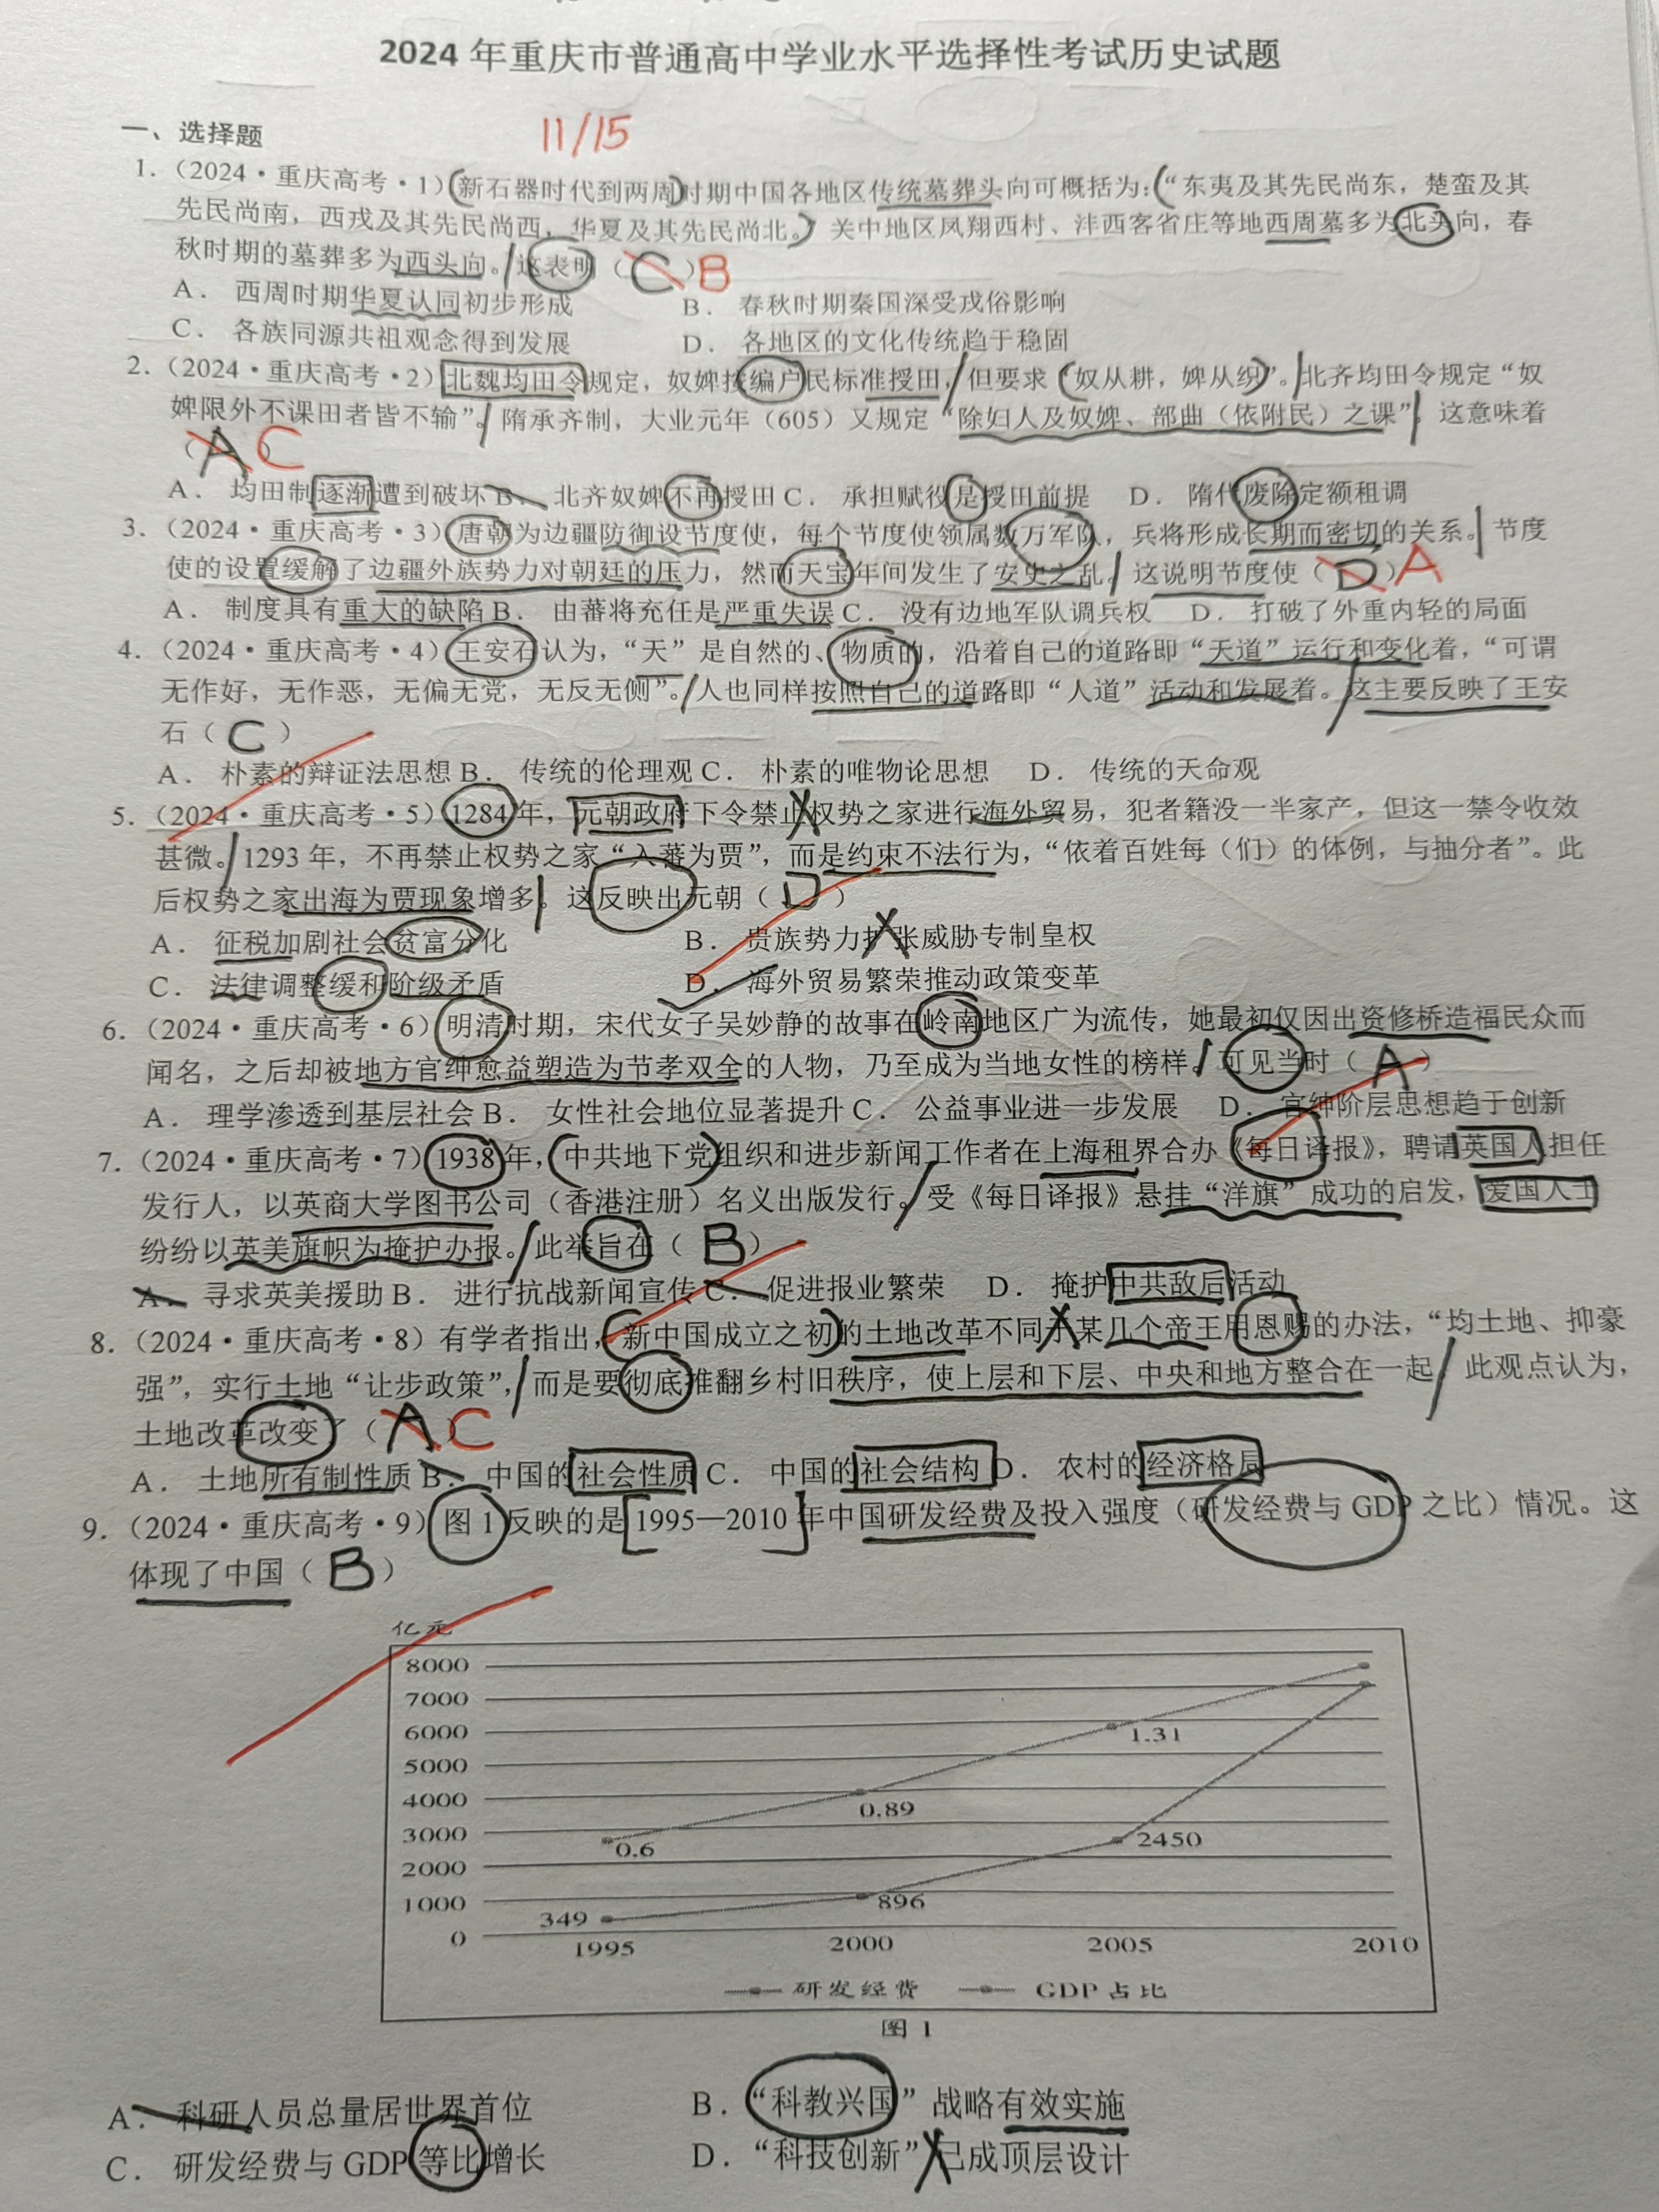 2024年重庆市普通高中学业水平选择性考试历史试题
一、选择题
11/15
1.（2024·重庆高考·1）新石器时代到两周时期中国各地区传统墓葬头向可概括为：“东夷及其先民尚东，楚蛮及其
先民尚南，西戎及其先民尚西，华夏及其先民尚北。”关中地区凤翔西村、沣西客省庄等地西周墓多为北头向，春
秋时期的墓葬多为西头向。这表明（ C ）B
A．西周时期华夏认同初步形成 B．春秋时期秦国深受戎俗影响
C．各族同源共祖观念得到发展 D．各地区的文化传统趋于稳固
2.（2024·重庆高考·2）北魏均田令规定，奴婢按编户民标准授田，但要求“奴从耕，婢从织”。北齐均田令规定“奴
婢限外不课田者皆不输”。隋承齐制，大业元年（605）又规定“除妇人及奴婢、部曲（依附民）之课”。这意味着
（ A ）C
A．均田制逐渐遭到破坏 B．北齐奴婢不再授田 C．承担赋役是授田前提 D．隋代废除定额租调
3.（2024·重庆高考·3）唐朝为边疆防御设节度使，每个节度使领属数万军队，兵将形成长期而密切的关系。节度
使的设置缓解了边疆外族势力对朝廷的压力，然而天宝年间发生了安史之乱。这说明节度使（ D ）A
A．制度具有重大的缺陷 B．由蕃将充任是严重失误 C．没有边地军队调兵权 D．打破了外重内轻的局面
4.（2024·重庆高考·4）王安石认为，“天”是自然的、物质的，沿着自己的道路即“天道”运行和变化着，“可谓
无作好，无作恶，无偏无党，无反无侧”。人也同样按照自己的道路即“人道”活动和发展着。这主要反映了王安
石（ C ）
A．朴素的辩证法思想 B．传统的伦理观 C．朴素的唯物论思想 D．传统的天命观
5.（2024·重庆高考·5）1284年，元朝政府下令禁止权势之家进行海外贸易，犯者籍没一半家产，但这一禁令收效
甚微。1293年，不再禁止权势之家“入蕃为贾”，而是约束不法行为，“依着百姓每（们）的体例，与抽分者”。此
后权势之家出海为贾现象增多。这反映出元朝（ D ）
A．征税加剧社会贫富分化 B．贵族势力扩张威胁专制皇权
C．法律调整缓和阶级矛盾 D．海外贸易繁荣推动政策变革
6.（2024·重庆高考·6）明清时期，宋代女子吴妙静的故事在岭南地区广为流传，她最初仅因出资修桥造福民众而
闻名，之后却被地方官绅愈益塑造为节孝双全的人物，乃至成为当地女性的榜样。可见当时（ A ）
A．理学渗透到基层社会 B．女性社会地位显著提升 C．公益事业进一步发展 D．官绅阶层思想趋于创新
7.（2024·重庆高考·7）1938年，中共地下党组织和进步新闻工作者在上海租界合办《每日译报》，聘请英国人担任
发行人，以英商大学图书公司（香港注册）名义出版发行。受《每日译报》悬挂“洋旗”成功的启发，爱国人士
纷纷以英美旗帜为掩护办报。此举旨在（ B ）
A．寻求英美援助 B．进行抗战新闻宣传 C．促进报业繁荣 D．掩护中共敌后活动
8.（2024·重庆高考·8）有学者指出，新中国成立之初的土地改革不同于某几个帝王用恩赐的办法，“均土地、抑豪
强”，实行土地“让步政策”，而是要彻底推翻乡村旧秩序，使上层和下层、中央和地方整合在一起。此观点认为，
土地改革改变了（ A ）C
A．土地所有制性质 B．中国的社会性质 C．中国的社会结构 D．农村的经济格局
9.（2024·重庆高考·9）图1反映的是1995—2010年中国研发经费及投入强度（研发经费与GDP之比）情况。这
体现了中国（ B ）
亿元
8000
7000
6000 1.31
5000
4000 0.89
3000 0.6 2450
2000
1000 349 896
0
1995 2000 2005 2010
研发经费 GDP占比
图1
A．科研人员总量居世界首位 B．“科教兴国”战略有效实施
C．研发经费与GDP等比增长 D．“科技创新”已成顶层设计